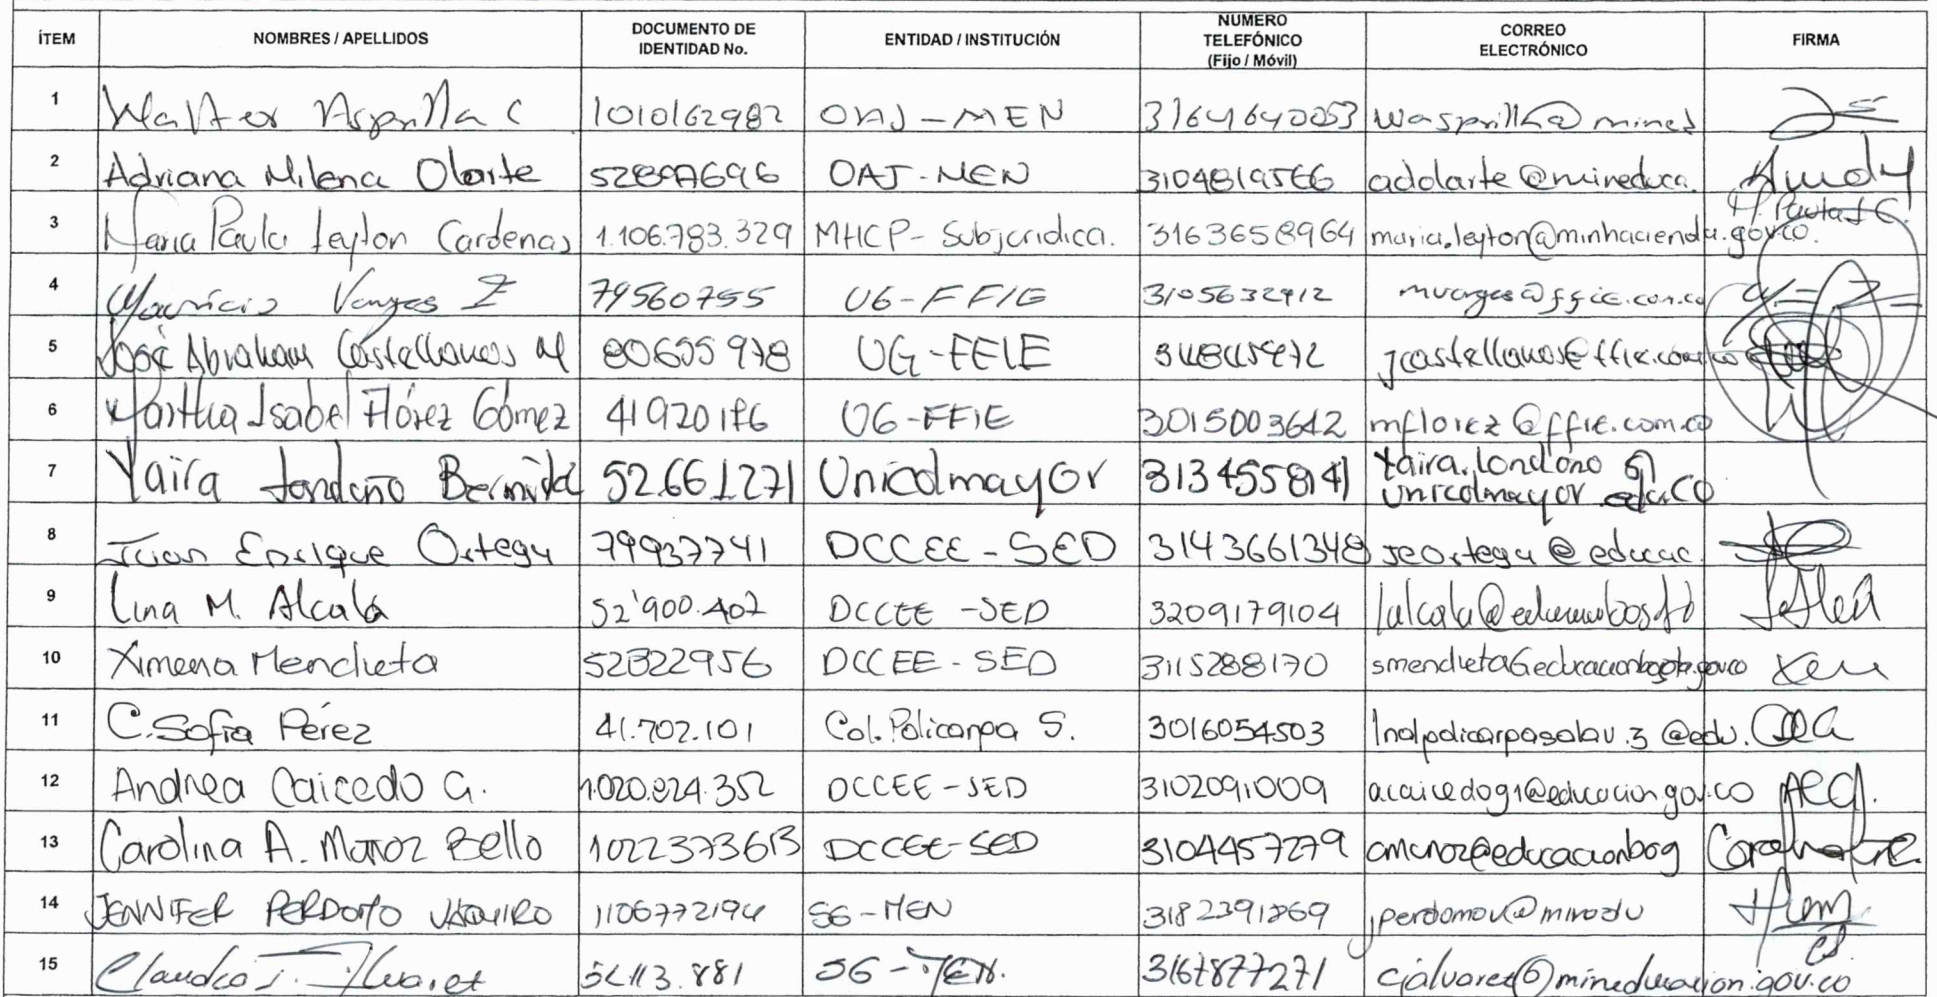 ÍTEM NOMBRES / APELLIDOS DOCUMENTO DE IDENTIDAD No. ENTIDAD / INSTITUCIÓN NUMERO TELEFÓNICO (Fijo / Móvil) CORREO ELECTRÓNICO FIRMA
1 Walter Asprilla C 1010162982 OAJ-MEN 31641640053 wasprilla@mined
2 Adriana Milena Olarte OAJ-MEN 3104819566 adolarte@mineduca.
3 Maria Paula Leyton Cardenas 1.106.783.329 MHCP- Subjuridica. 3163658964 maria.leyton@minhacienda.gov.co.
4 Mauricio Vargas Z 79560755 UG-FFIE 3105632912 mvargas@ffie.com.co
5 José Abraham Castellanos M 80655978 UG-FFIE jcastellanos@ffie.com.co
6 Martha Isabel Flórez Gómez 41920176 UG-FFIE 3015003642 mflorez@ffie.com.co
7 Yaira Londoño Bermúdez 52.661.271 Unicolmayor 3134558141 yaira.londono@
unicolmayor.edu.co
8 Juan Enrique Ortega 79937741 DCCEE-SED 3143661348 jeortega@educac.
9 Lina M. Alcalá 52'900.407 DCCEE-SED 3209179104
10 Ximena Mendieta 52822956 DCCEE-SED 3115288170 smendieta@educacionbogota.gov.co
11 C. Sofía Pérez 41.702.101 Col. Policarpa S. 3016054503 @edu.
12 Andrea Caicedo G. 1.020.824.352 DCCEE-SED 3102091009 acaicedog1@educacion.gov.co
13 Carolina A. Munoz Bello 1022373613 DCCEE-SED 3104457279 cmunoz@educacionbog
14 JENNIFER PERDOMO VAQUIRO 1106772194 SG-MEN jperdomov@minedu
15 Claudia J. Alvarez SG-MEN. 3167877271 cjalvarez@mineducacion.gov.co